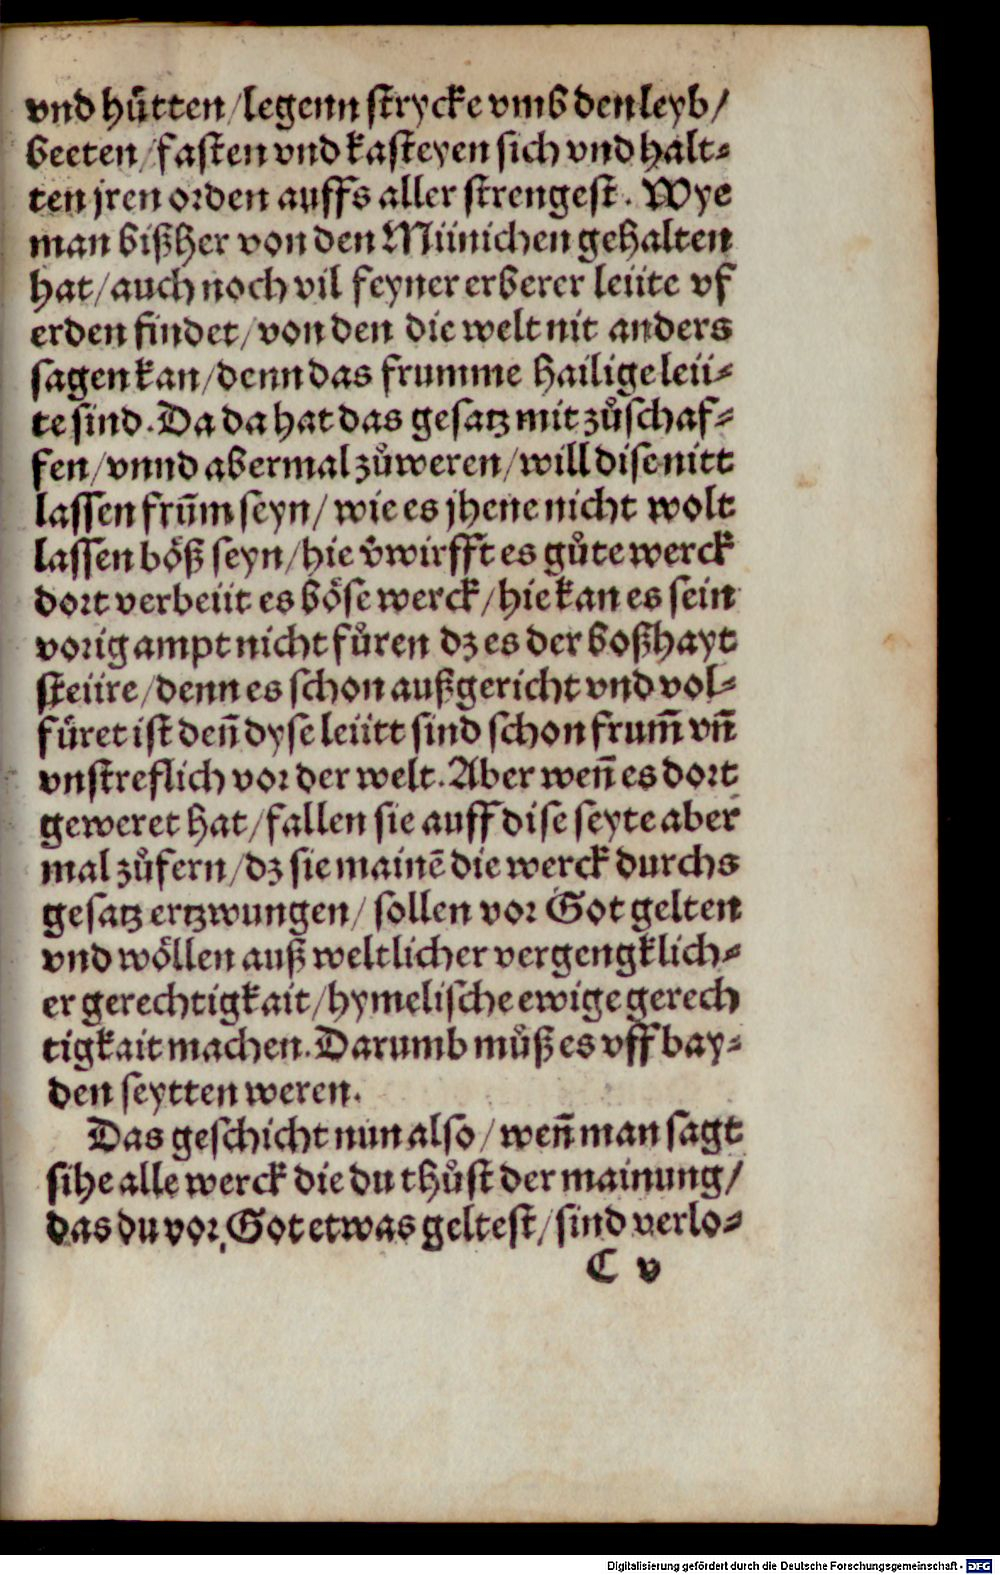 vnd hůtten/legenn strycke vmb den leyb/
beeten/fasten vnd kasteyen sich vnd halt⸗
ten jren orden auffs aller strengest. Wye
man bißher von den Münichen gehalten
hat/auch noch vil feyner erberer leüte vf
erden findet/von den die welt nit anders
sagen kan/denn das frumme hailige leü⸗
te sind. Da da hat das gesatz mit zůschaf⸗
fen/vnnd abermal zůweren/will dise nitt
lassen frūm seyn/ wie es jhene nicht wolt
lassen böß seyn/hie v̄wirfft es gůte werck
dort verbeüt es böse werck/hie kan es sein
vorig ampt nicht fůren dz es der boßhayt
steüre/denn es schon außgericht vnd vol⸗
füret ist deñ dyse leütt sind schon frum̄ vñ
vnstreflich vor der welt. Aber weñ es dort
geweret hat/fallen sie auff dise seyte aber
mal zůfern/dz sie mainē die werck durchs
gesatz ertzwungen/ sollen vor Got gelten
vnd wöllen auß weltlicher vergengklich⸗
er gerechtigkait/hymelische ewige gerech
tigkait machen. Darumb můß es vff bay⸗
den seytten weren.
Das geschicht nun also/weñ man sagt
sihe alle werck die du thůst der mainung/
das du vor Got etwas geltest/sind verlo⸗
C v
Digitalisierung gefördert durch die Deutsche Forschungsgemeinschaft - DFG